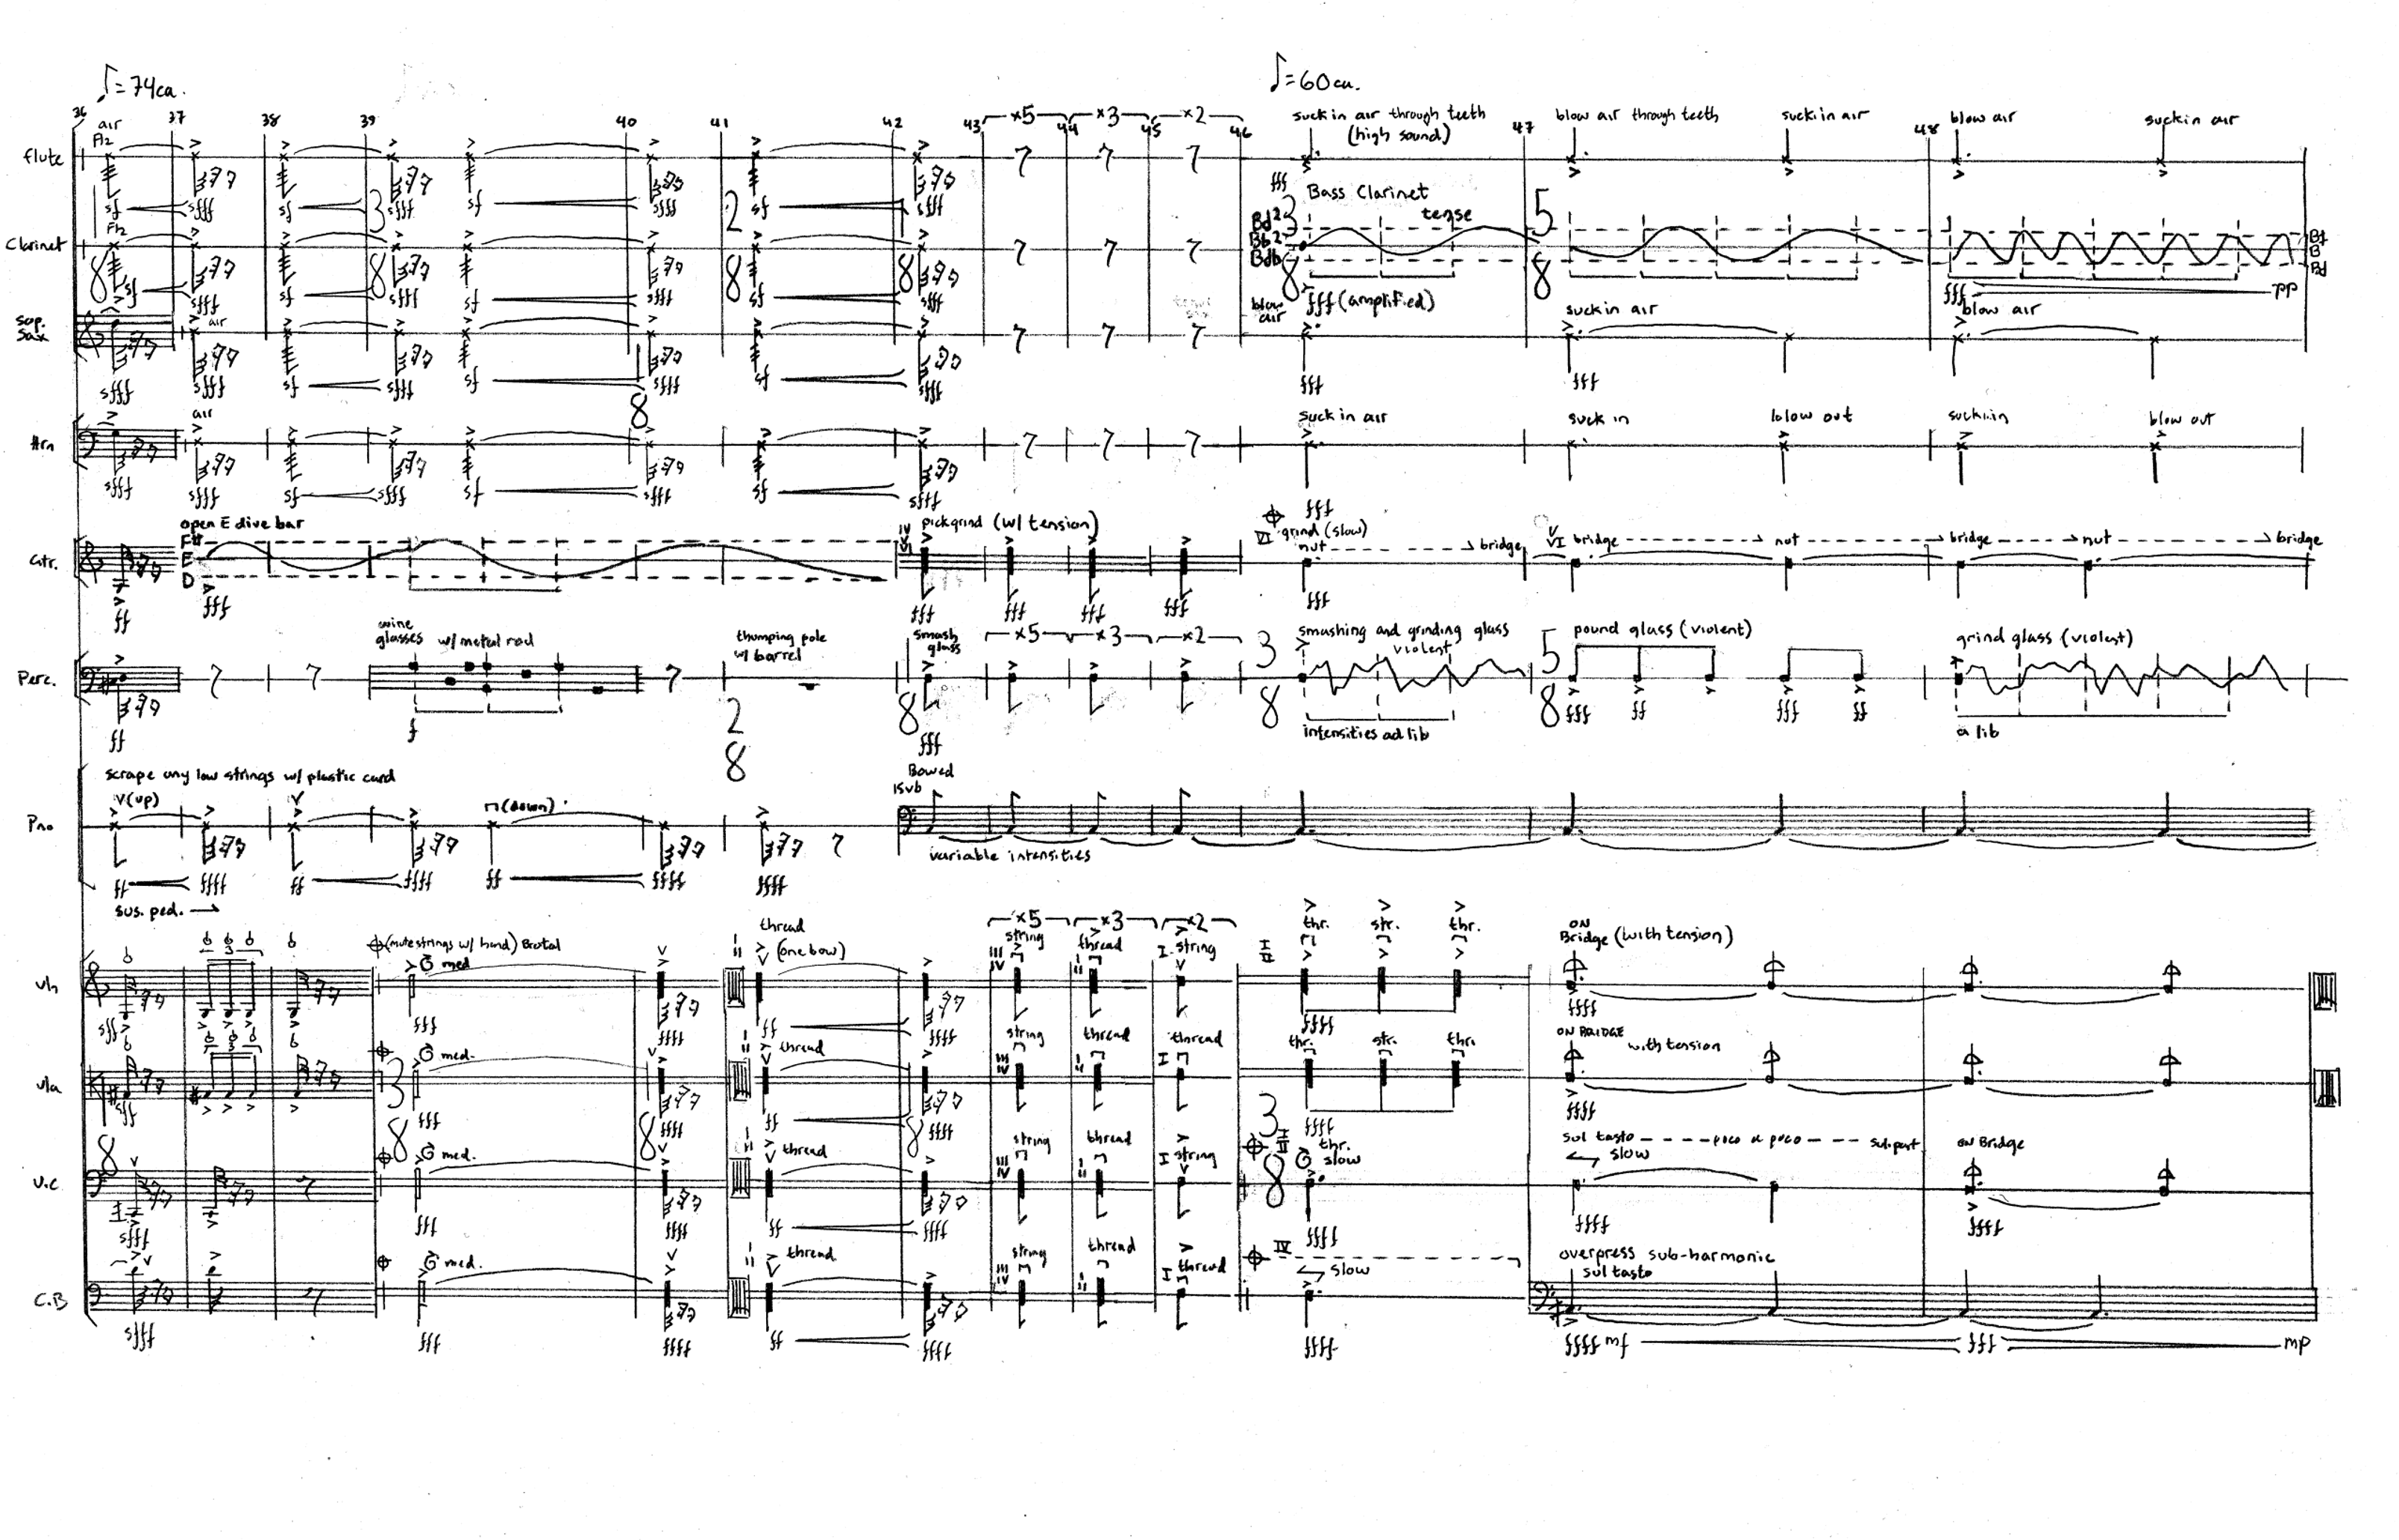 ♪=74ca.
♪=60ca.
36 37 38 39 40 41 42 43 ×5 44 ×3 45 ×2 46 47 48
flute
air
sf sfff sf sfff sf sfff sf sfff
suck in air through teeth
(high sound)
blow air through teeth
suck in air
blow air
suck in air
fff
Clarinet
8 3 8 2 8 8
sf sfff sf sfff sf sfff sf sfff
Bass Clarinet
tense
3 8
5 8
fff (amplified)
fff pp
Sop.
Sax
air
sfff sfff sf sfff sf sfff sf sfff
blow
air
fff
suck in air
fff
blow air
Hrn
air
8
sfff sfff sf sfff sf sfff sf sfff
suck in air
fff
suck in
blow out
suck in
blow out
Gtr.
open E dive bar
F#
E
D
ff
fff
pick grind (w/ tension)
fff fff fff fff
VI grind (slow)
nut bridge
fff
VI bridge nut bridge nut bridge
Perc.
ff
wine
glasses w/ metal rod
f
thumping pole
w/ barrel
2 8
smash
glass
8
fff
×5 ×3 ×2
3 8
smashing and grinding glass
violent
intensities ad lib
5 8
pound glass (violent)
fff ff fff ff
grind glass (violent)
a lib
Pno
scrape any low strings w/ plastic card
V (up)
(down)
ff ffff ff ffff ff ffff ffff
sus. ped.
Bowed
15vb
variable intensities
vln
3
sff
(mute strings w/ hand) Brutal
med
fff
ffff
thread
(one bow)
ff ffff
×5 ×3 ×2
III IV string
II thread
I string
I II
thr. str. thr.
ffff
ON
Bridge (with tension)
ffff
vla
3
sff
3 8
med.
fff
8
ffff
thread
ff ffff
8
string
thread
I thread
3
thr. str. thr.
ffff
ON BRIDGE
with tension
ffff
v.c
8
sfff
med.
fff
ffff
thread
ff ffff
string
thread
I string
8
thr.
slow
ffff
sul tasto poco a poco
slow
ffff
ON Bridge
ffff
C.B
sfff
med.
fff
ffff
thread
ff ffff
string
thread
I thread
IV
slow
ffff
overpress sub-harmonic
sul tasto
ffff mf fff mp